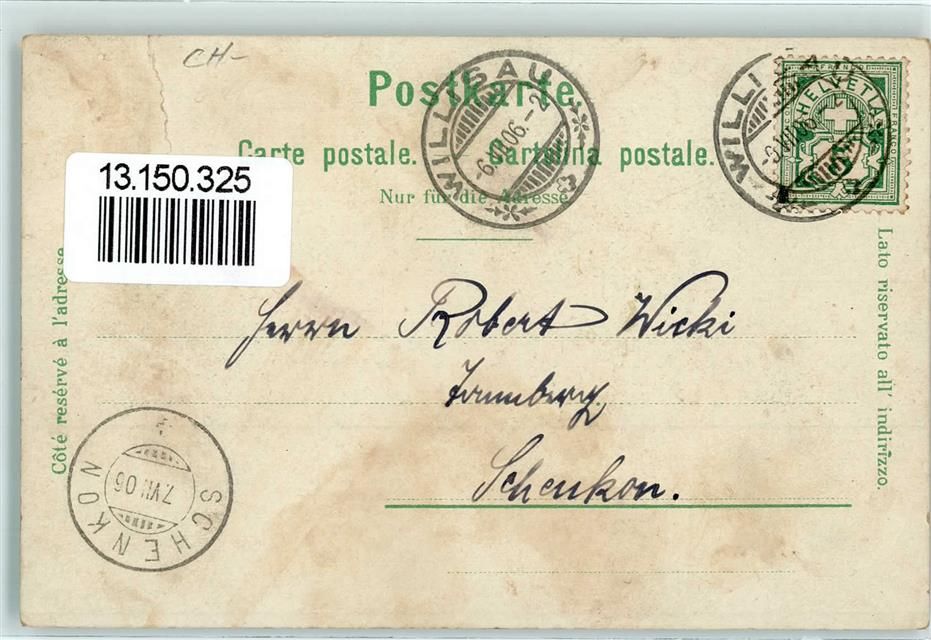 CH-
Postkarte
Carte postale. Cartolina postale.
Nur für die Adresse
WILLISAU
WILLISAU
FRANCO
HELVETIA
13.150.325
Côté resérvé à l'adresse
Lato riservato all' indirizzo.
Herrn Robert Wicki
Tannberg
Schenkon.
SCHENKON
7.VII.06